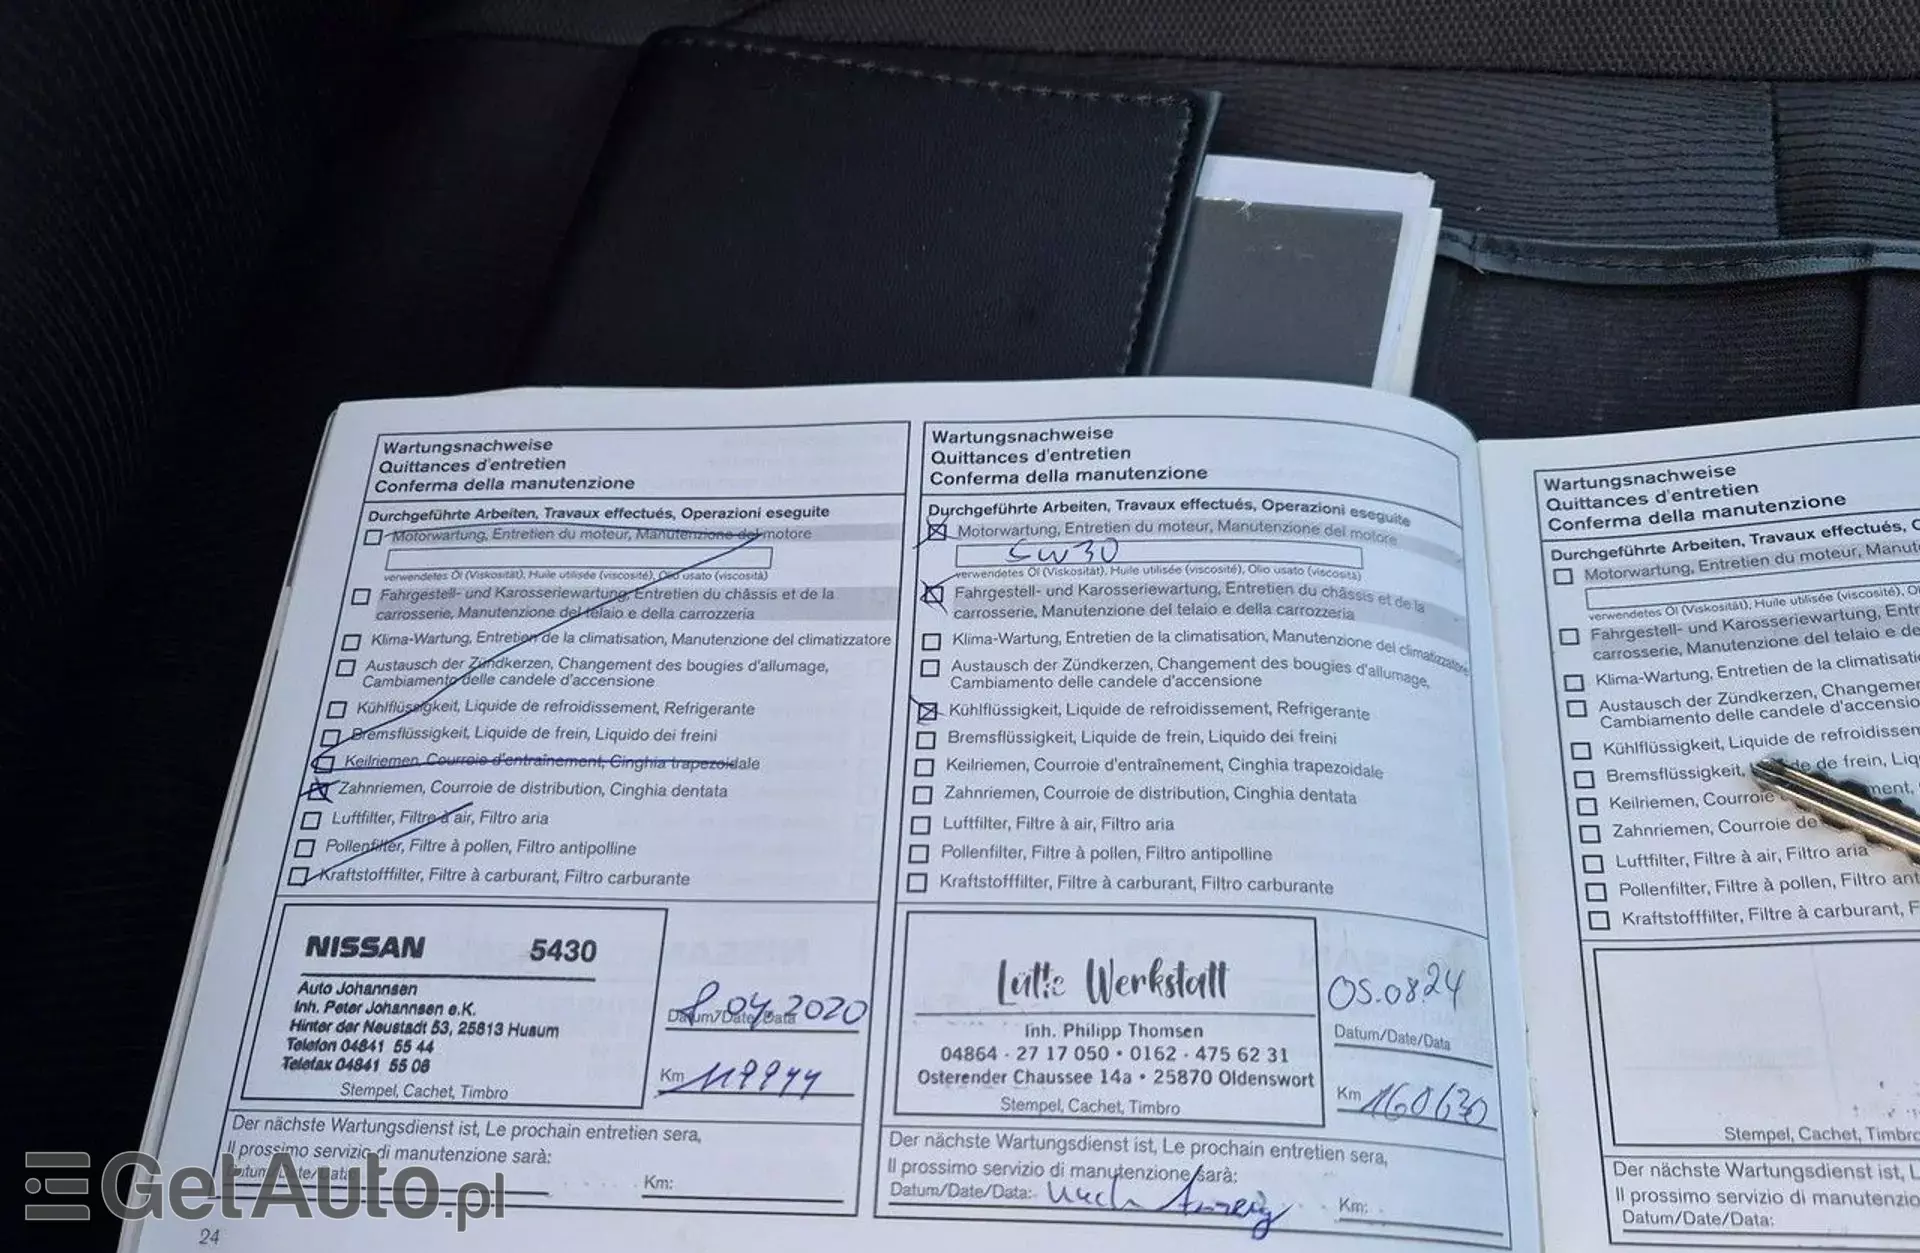 Wartungsnachweise
Quittances d'entretien
Conferma della manutenzione
Durchgeführte Arbeiten, Travaux effectués, Operazioni eseguite
Motorwartung, Entretien du moteur, Manutenzione del motore
verwendetes Öl (Viskosität), Huile utilisée (viscosité), Olio usato (viscosità)
Fahrgestell- und Karosseriewartung, Entretien du châssis et de la
carrosserie, Manutenzione del telaio e della carrozzeria
Klima-Wartung, Entretien de la climatisation, Manutenzione del climatizzatore
Austausch der Zündkerzen, Changement des bougies d'allumage,
Cambiamento delle candele d'accensione
Kühlflüssigkeit, Liquide de refroidissement, Refrigerante
Bremsflüssigkeit, Liquide de frein, Liquido dei freini
Keilriemen, Courroie d'entraînement, Cinghia trapezoidale
Zahnriemen, Courroie de distribution, Cinghia dentata
Luftfilter, Filtre à air, Filtro aria
Pollenfilter, Filtre à pollen, Filtro antipolline
Kraftstofffilter, Filtre à carburant, Filtro carburante
NISSAN 5430
Auto Johannsen
Inh. Peter Johannsen e.K.
Hinter der Neustadt 53, 25813 Husum
Telefon 04841 55 44
Telefax 04841 55 08
Stempel, Cachet, Timbro
8.04.2020
Datum/Date/Data
Km 119944
Der nächste Wartungsdienst ist, Le prochain entretien sera,
Il prossimo servizio di manutenzione sarà:
Datum/Date/Data:
Km:
24
Wartungsnachweise
Quittances d'entretien
Conferma della manutenzione
Durchgeführte Arbeiten, Travaux effectués, Operazioni eseguite
Motorwartung, Entretien du moteur, Manutenzione del motore
5W30
verwendetes Öl (Viskosität), Huile utilisée (viscosité), Olio usato (viscosità)
Fahrgestell- und Karosseriewartung, Entretien du châssis et de la
carrosserie, Manutenzione del telaio e della carrozzeria
Klima-Wartung, Entretien de la climatisation, Manutenzione del climatizzatore
Austausch der Zündkerzen, Changement des bougies d'allumage,
Cambiamento delle candele d'accensione
Kühlflüssigkeit, Liquide de refroidissement, Refrigerante
Bremsflüssigkeit, Liquide de frein, Liquido dei freini
Keilriemen, Courroie d'entraînement, Cinghia trapezoidale
Zahnriemen, Courroie de distribution, Cinghia dentata
Luftfilter, Filtre à air, Filtro aria
Pollenfilter, Filtre à pollen, Filtro antipolline
Kraftstofffilter, Filtre à carburant, Filtro carburante
Lütte Werkstatt
Inh. Philipp Thomsen
04864 - 27 17 050 • 0162 - 475 62 31
Osterender Chaussee 14a • 25870 Oldenswort
Stempel, Cachet, Timbro
05.08.24
Datum/Date/Data
Km 160630
Der nächste Wartungsdienst ist, Le prochain entretien sera,
Il prossimo servizio di manutenzione sarà:
Datum/Date/Data: Nach Anzeige
Km:
Wartungsnachweise
Quittances d'entretien
Conferma della manutenzione
Durchgeführte Arbeiten, Travaux effectués,
Motorwartung, Entretien du moteur,
verwendetes Öl (Viskosität), Huile utilisée (viscosité),
Fahrgestell- und Karosseriewartung,
carrosserie, Manutenzione del telaio e
Klima-Wartung, Entretien de la
Austausch der Zündkerzen,
Cambiamento delle candele
Kühlflüssigkeit, Liquide de
Bremsflüssigkeit, de frein,
Keilriemen, Courroie
Zahnriemen, Courroie de
Luftfilter, Filtre à air, Filtro aria
Pollenfilter, Filtre à pollen, Filtro
Kraftstofffilter, Filtre à carburant,
Stempel, Cachet, Timbro
Der nächste Wartungsdienst ist,
Il prossimo servizio di
Datum/Date/Data:
GetAuto.pl